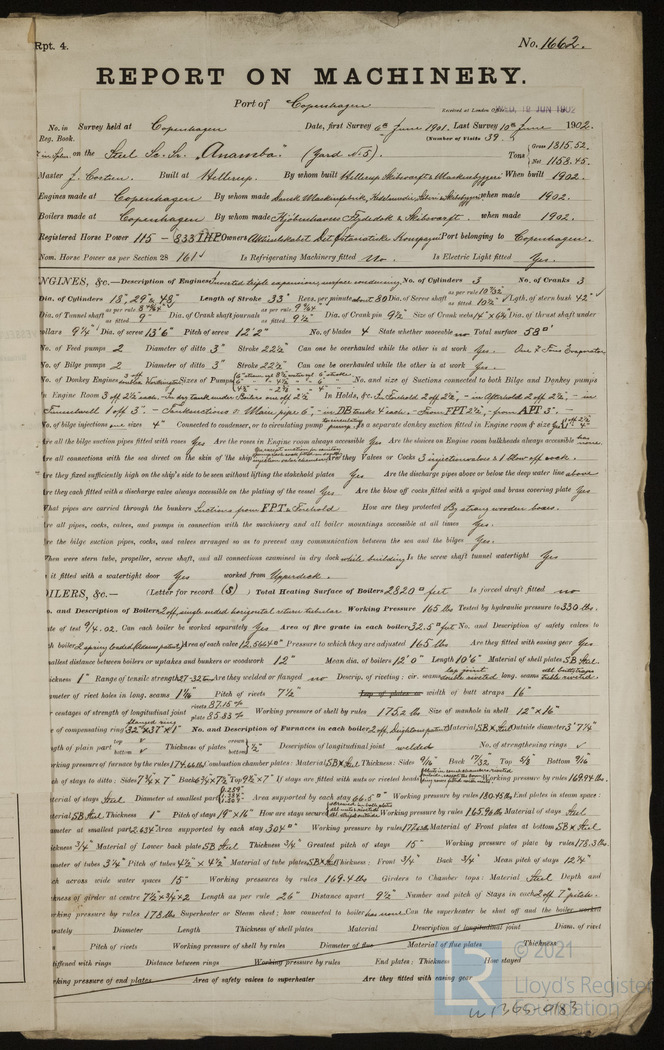 Rpt. 4. No. 1662.
REPORT ON MACHINERY.
Port of Copenhagen Received at London WED. 18 JUN 1902
No. in Survey held at Copenhagen Date, first Survey 6th June 1901. Last Survey 10th June 1902.
Reg. Book. (Number of Visits 39.)
on the Steel Sc. Sr. "Anamba" (Yard No 5) Tons Gross 1815.52. Net 1158.45.
Master J. Built at Hellerup. By whom built Hellerup Skibsvarft & Maskinbyggeri When built 1902.
Engines made at Copenhagen By whom made when made 1902.
Boilers made at Copenhagen By whom made Kjöbenhavns Flydedok & Skibsvarft. when made 1902.
Registered Horse Power 115 - 833 IHP Owners Aktieselskabet Det Ostasiatiske Kompagni Port belonging to Copenhagen.
Nom. Horse Power as per Section 28 161 Is Refrigerating Machinery fitted No. Is Electric Light fitted Yes.
NGINES, &c.—Description of Engines Inverted triple expansion, surface condensing No. of Cylinders 3 No. of Cranks 3
Dia. of Cylinders 18", 29" & 48" Length of Stroke 33" Revs. per minute about 80 Dia. of Screw shaft as per rule as fitted 10½" Lgth. of stern bush 42"
Dia. of Tunnel shaft as per rule as fitted 9" Dia. of Crank shaft journals as per rule as fitted 9½" Dia. of Crank pin 9½" Size of Crank webs 14"×6¼" Dia. of thrust shaft under
ollars 9¼" Dia. of screw 13'6" Pitch of screw 12'2" No. of blades 4 State whether moveable no Total surface 58
No. of Feed pumps 2 Diameter of ditto 3" Stroke 22½" Can one be overhauled while the other is at work Yes. Evaporator
No. of Bilge pumps 2 Diameter of ditto 3" Stroke 22½" Can one be overhauled while the other is at work Yes.
No. of Donkey Engines Sizes of Pumps No. and size of Suctions connected to both Bilge and Donkey pumps
In Engine Room 3 off 2½" each. In dry tank under Boilers one off 2½" In Holds, &c. In Forehold 2 off 2½", - in Afterhold 2 off 2½", - in
Tunnelwell 1 off 3". - Tanksuctions: Main pipe 6", - in DB tanks 4" each, - From FPT 2½", - from APT 3". -
No. of bilge injections one sizes 4" Connected to condenser, or to circulating pump Is a separate donkey suction fitted in Engine room & size
Are all the bilge suction pipes fitted with roses Yes Are the roses in Engine room always accessible Yes Are the sluices on Engine room bulkheads always accessible have none
Are all connections with the sea direct on the skin of the ship Are they Valves or Cocks 3 injection valves & 1 blow off cock.
Are they fixed sufficiently high on the ship's side to be seen without lifting the stokehold plates Yes Are the discharge pipes above or below the deep water line above
Are they each fitted with a discharge valve always accessible on the plating of the vessel Yes Are the blow off cocks fitted with a spigot and brass covering plate Yes
What pipes are carried through the bunkers Suctions from FPT & Forehold How are they protected By strong wooden boxes.
Are all pipes, cocks, valves, and pumps in connection with the machinery and all boiler mountings accessible at all times Yes.
Are the bilge suction pipes, cocks, and valves arranged so as to prevent any communication between the sea and the bilges Yes.
When were stern tube, propeller, screw shaft, and all connections examined in dry dock while building Is the screw shaft tunnel watertight Yes
it fitted with a watertight door Yes worked from Upperdeck.
OILERS, &c.— (Letter for record (S)) Total Heating Surface of Boilers 2820 feet Is forced draft fitted no
o. and Description of Boilers 2 off, single ended horizontal return tubular Working Pressure 165 lbs Tested by hydraulic pressure to 330 lbs.
te of test 9/4.02. Can each boiler be worked separately Yes Area of fire grate in each boiler 32.5 feet No. and Description of safety valves to
h boiler 2 spring loaded Area of each valve 12.566 Pressure to which they are adjusted 165 lbs Are they fitted with easing gear Yes
allest distance between boilers or uptakes and bunkers or woodwork 12" Mean dia. of boilers 12'0" Length 10'6" Material of shell plates SB Steel
ickness 1" Range of tensile strength 27-32 Are they welded or flanged no Descrip. of riveting: cir. seams lap joint double riveted long. seams dbl buttstraps treble riveted.
ameter of rivet holes in long. seams 1 1/16" Pitch of rivets 7½" Lap of plates or width of butt straps 16"
er centages of strength of longitudinal joint rivets 87.15 plate 85.83 Working pressure of shell by rules 175.2 lbs Size of manhole in shell 12"×16"
e of compensating ring flanged ring 32"×37"×1" No. and Description of Furnaces in each boiler 2 off. Material SB × Steel Outside diameter 3'7¼"
gth of plain part top bottom Thickness of plates crown bottom ½" Description of longitudinal joint welded No. of strengthening rings
rking pressure of furnace by the rules Combustion chamber plates: Material SB × Steel Thickness: Sides 9/16" Back 17/32" Top 5/8" Bottom 9/16"
ch of stays to ditto: Sides Back Top If stays are fitted with nuts or riveted heads Working pressure by rules 169.94 lbs.
terial of stays Steel Diameter at smallest part Area supported by each stay 66.5 Working pressure by rules 180.45 lbs End plates in steam space:
aterial SB Steel Thickness 1" Pitch of stays 19"×16" How are stays secured Working pressure by rules 165.96 lbs Material of stays Steel
ameter at smallest part 2.634 Area supported by each stay 304 Working pressure by rules Material of Front plates at bottom SB × Steel
ickness ¾" Material of Lower back plate SB Steel Thickness ¾" Greatest pitch of stays 15" Working pressure of plate by rules 178.3 lbs
ameter of tubes 3¼" Pitch of tubes 4½"×4½" Material of tube plates SB × Steel Thickness: Front ¾" Back ¾" Mean pitch of stays 12¼"
ch across wide water spaces 15" Working pressures by rules 169.4 lbs Girders to Chamber tops: Material Steel Depth and
ckness of girder at centre 7½"×¾"×2 Length as per rule 26" Distance apart 9½" Number and pitch of Stays in each 2 off 7" pitch.
orking pressure by rules 178 lbs Superheater or Steam chest; how connected to boiler has none Can the superheater be shut off and the boiler worked
arately Diameter Length Thickness of shell plates Material Description of longitudinal joint Diam. of rivet
Pitch of rivets Working pressure of shell by rules Diameter of flue Material of flue plates Thickness
tiffened with rings Distance between rings Working pressure by rules End plates: Thickness How stayed
rking pressure of end plates Area of safety valves to superheater Are they fitted with easing gear
© 2021
LR Lloyd's Register
Foundation
W1365-0183